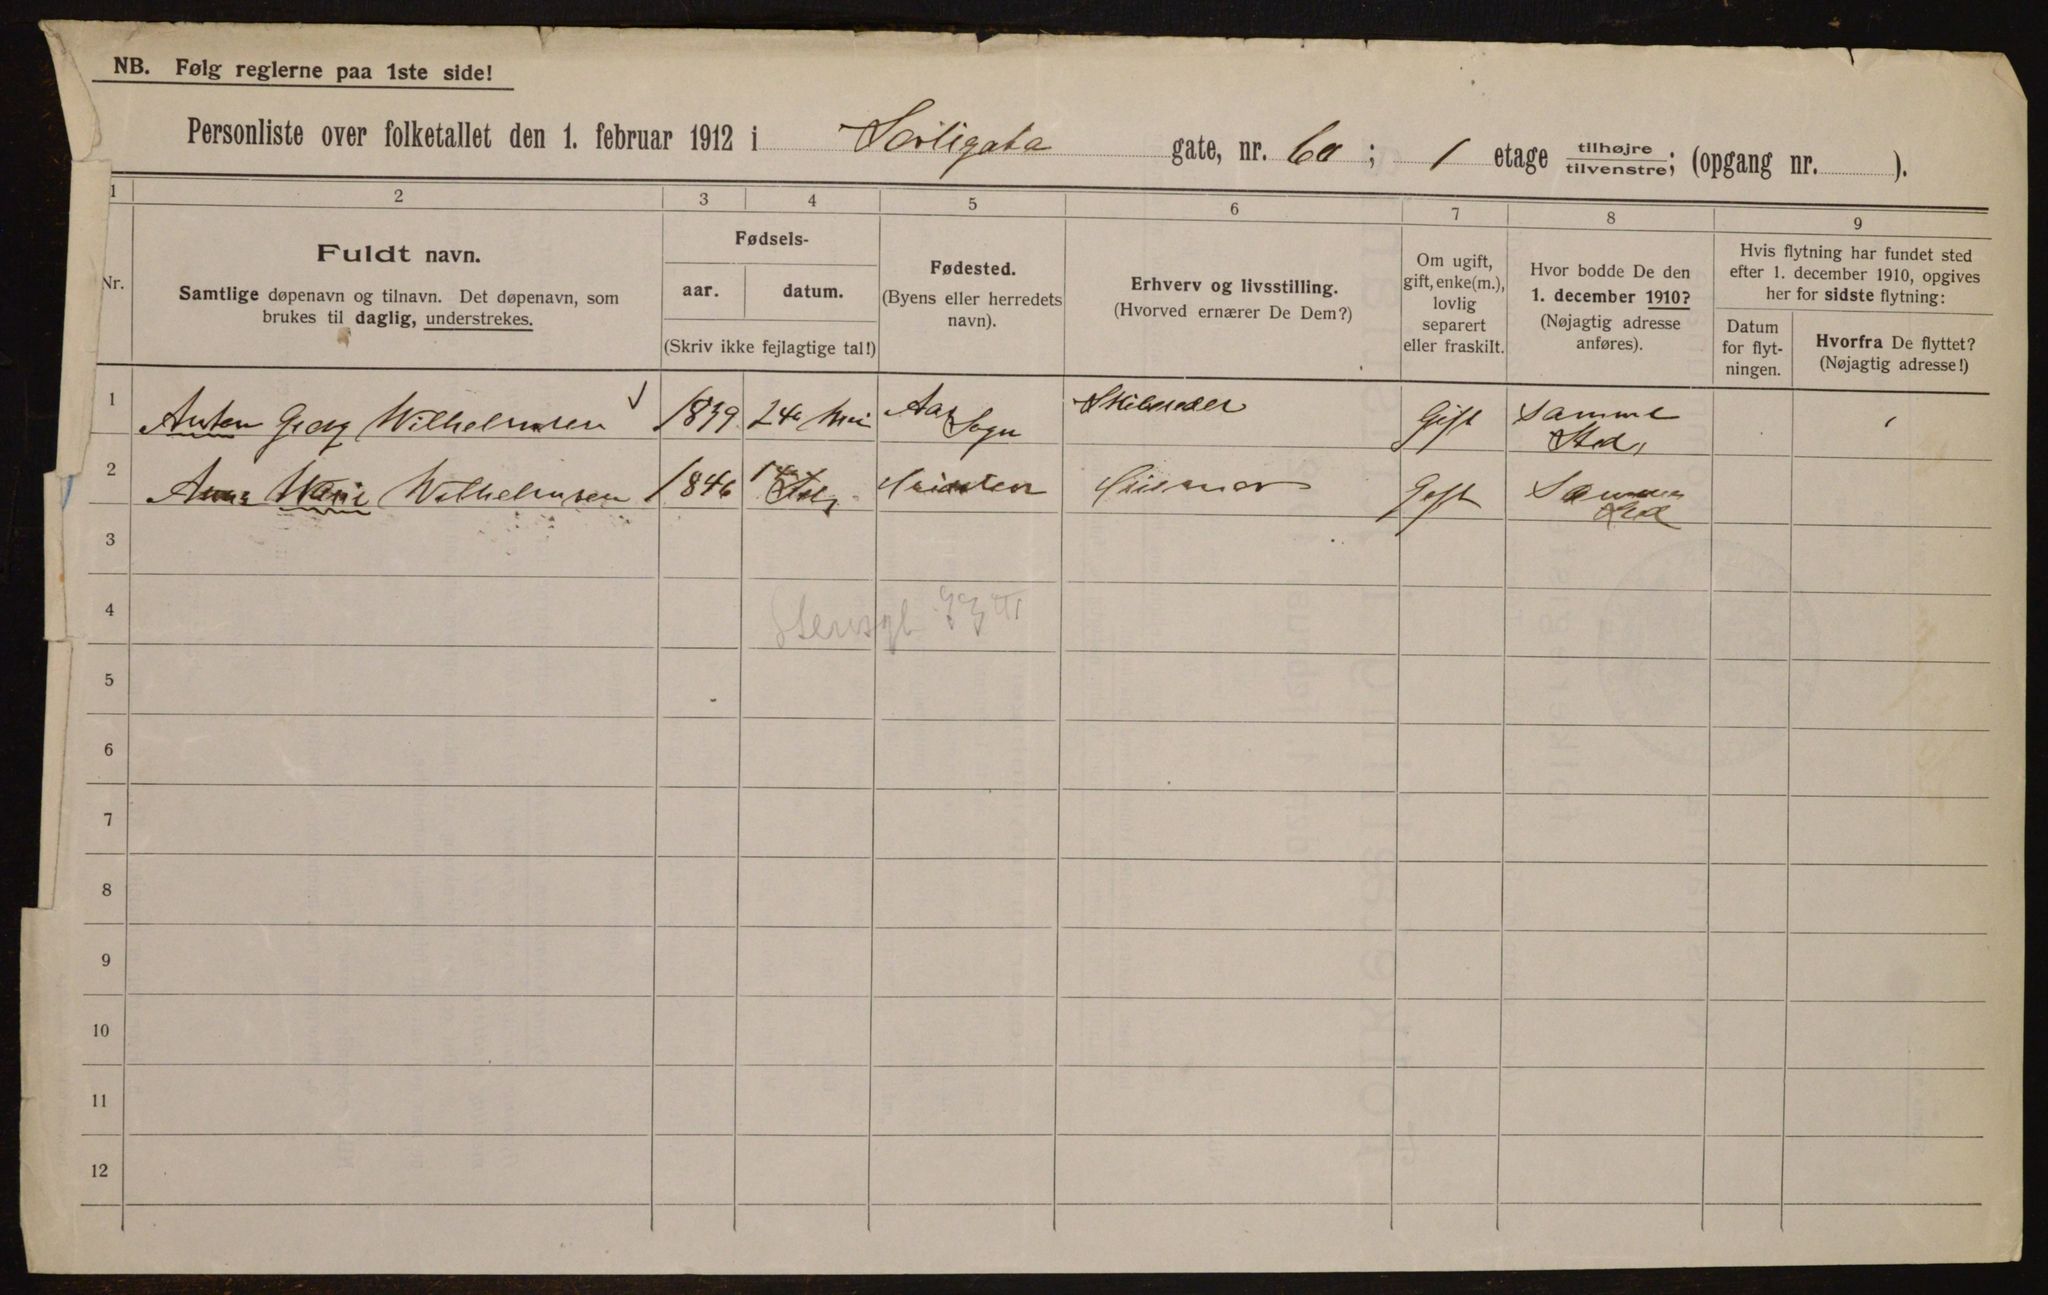 NB. Følg reglerne paa 1ste side!
Personliste over folketallet den 1. februar 1912 i Sørligata gate, nr. 60; 1 etage tilhøjre/tilvenstre; (opgang nr. ).
1 2 3 4 5 6 7 8 9
Nr.
Fuldt navn.
Samtlige døpenavn og tilnavn. Det døpenavn, som
brukes til daglig, understrekes.
Fødsels-
aar. datum.
(Skriv ikke fejlagtige tal!)
Fødested.
(Byens eller herredets
navn).
Erhverv og livsstilling.
(Hvorved ernærer De Dem?)
Om ugift,
gift, enke(m.),
lovlig
separert
eller fraskilt.
Hvor bodde De den
1. december 1910?
(Nøjagtig adresse
anføres).
Hvis flytning har fundet sted
efter 1. december 1910, opgives
her for sidste flytning:
Datum
for flyt-
ningen.
Hvorfra De flyttet?
(Nøjagtig adresse!)
1 Anton Georg Wilhelmsen 1839 24 Aas Sogn Gift Samme Sted
2 Anna Marie Wilhelmsen 1846 Gift Samme Sted
3
4
5
6
7
8
9
10
11
12